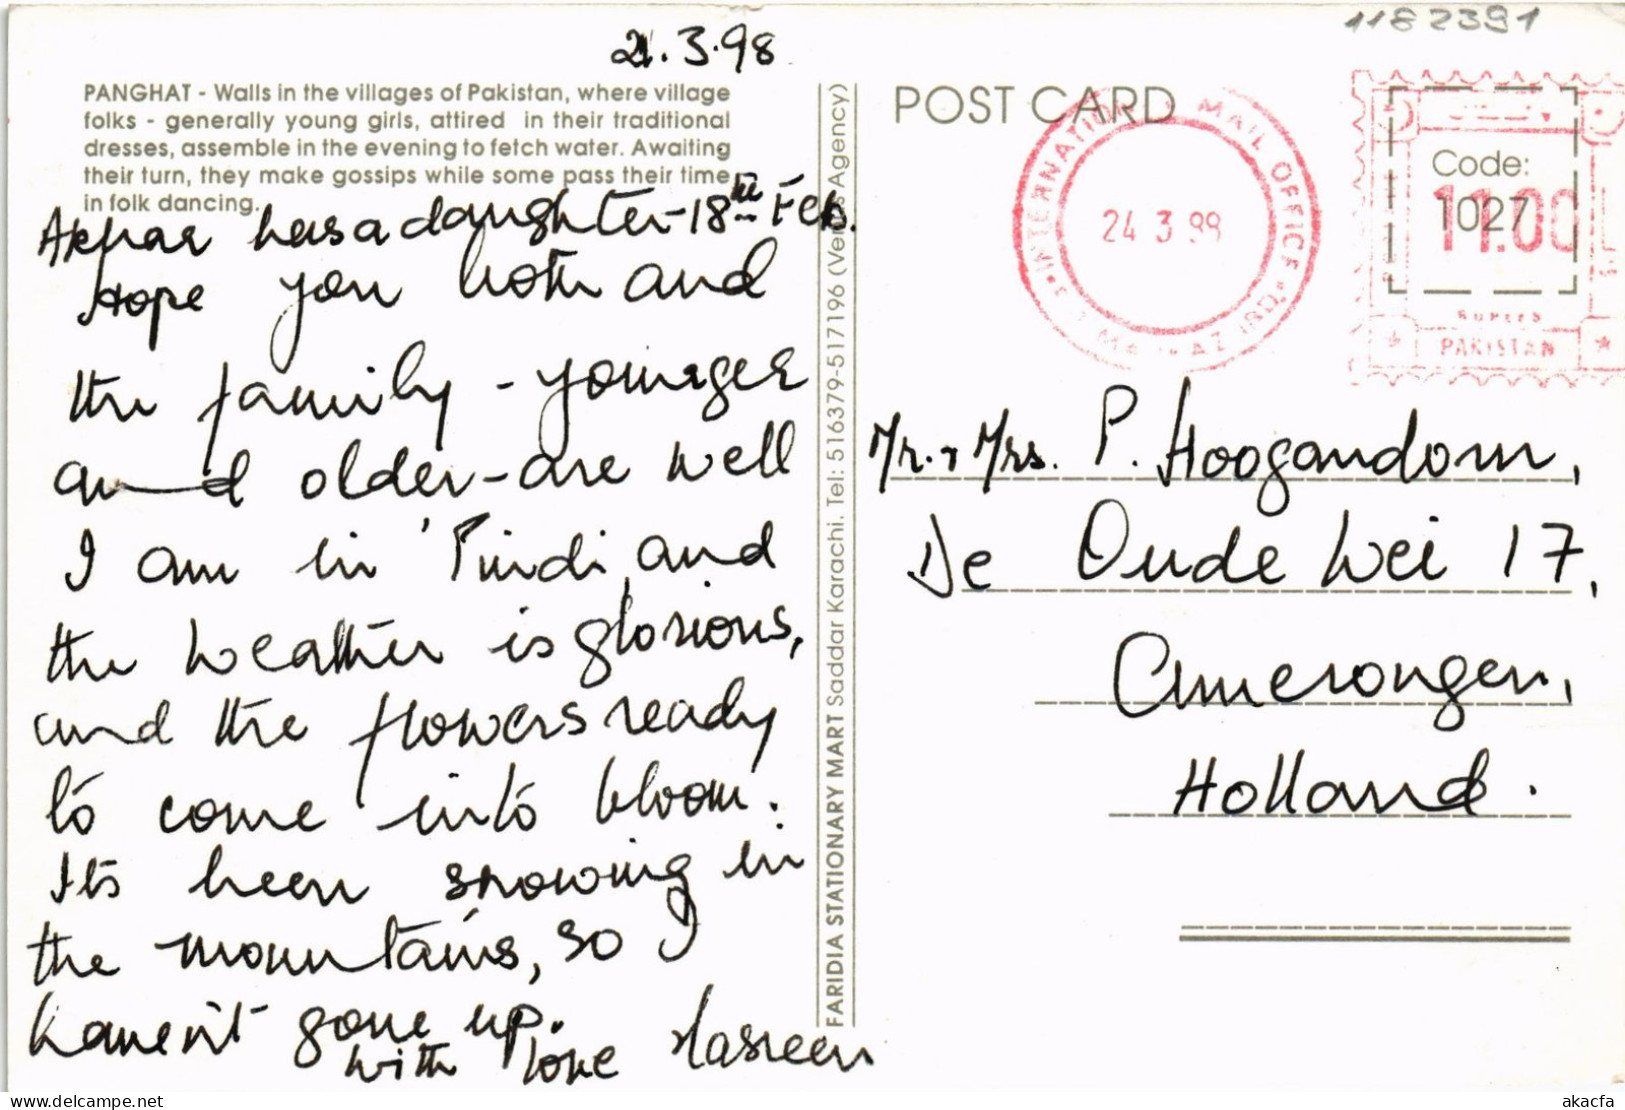 1182391
21.3.98
PANGHAT - Walls in the villages of Pakistan, where village
folks - generally young girls, attired in their traditional
dresses, assemble in the evening to fetch water. Awaiting
their turn, they make gossips while some pass their time
in folk dancing.
has a daughter - 18th Feb.
Hope you both and
the family - younger
and older - are well
I am in 'Pindi, and
the weather is glorious,
and the flowers ready
to come into bloom.
Its been snowing in
the mountains, so I
haven't gone up.
with love Nasreen
FARIDIA STATIONARY MART Saddar Karachi. Tel: 516379-517196 (Agency)
POST CARD
INTERNATIONAL MAIL OFFICE
24 3 98
Code:
1027
11.00
RUPEES
PAKISTAN
Mr. & Mrs. P. Hoogandorn,
De Oude Wei 17,
Amerongen,
Holland.
akacfa
delcampe.net